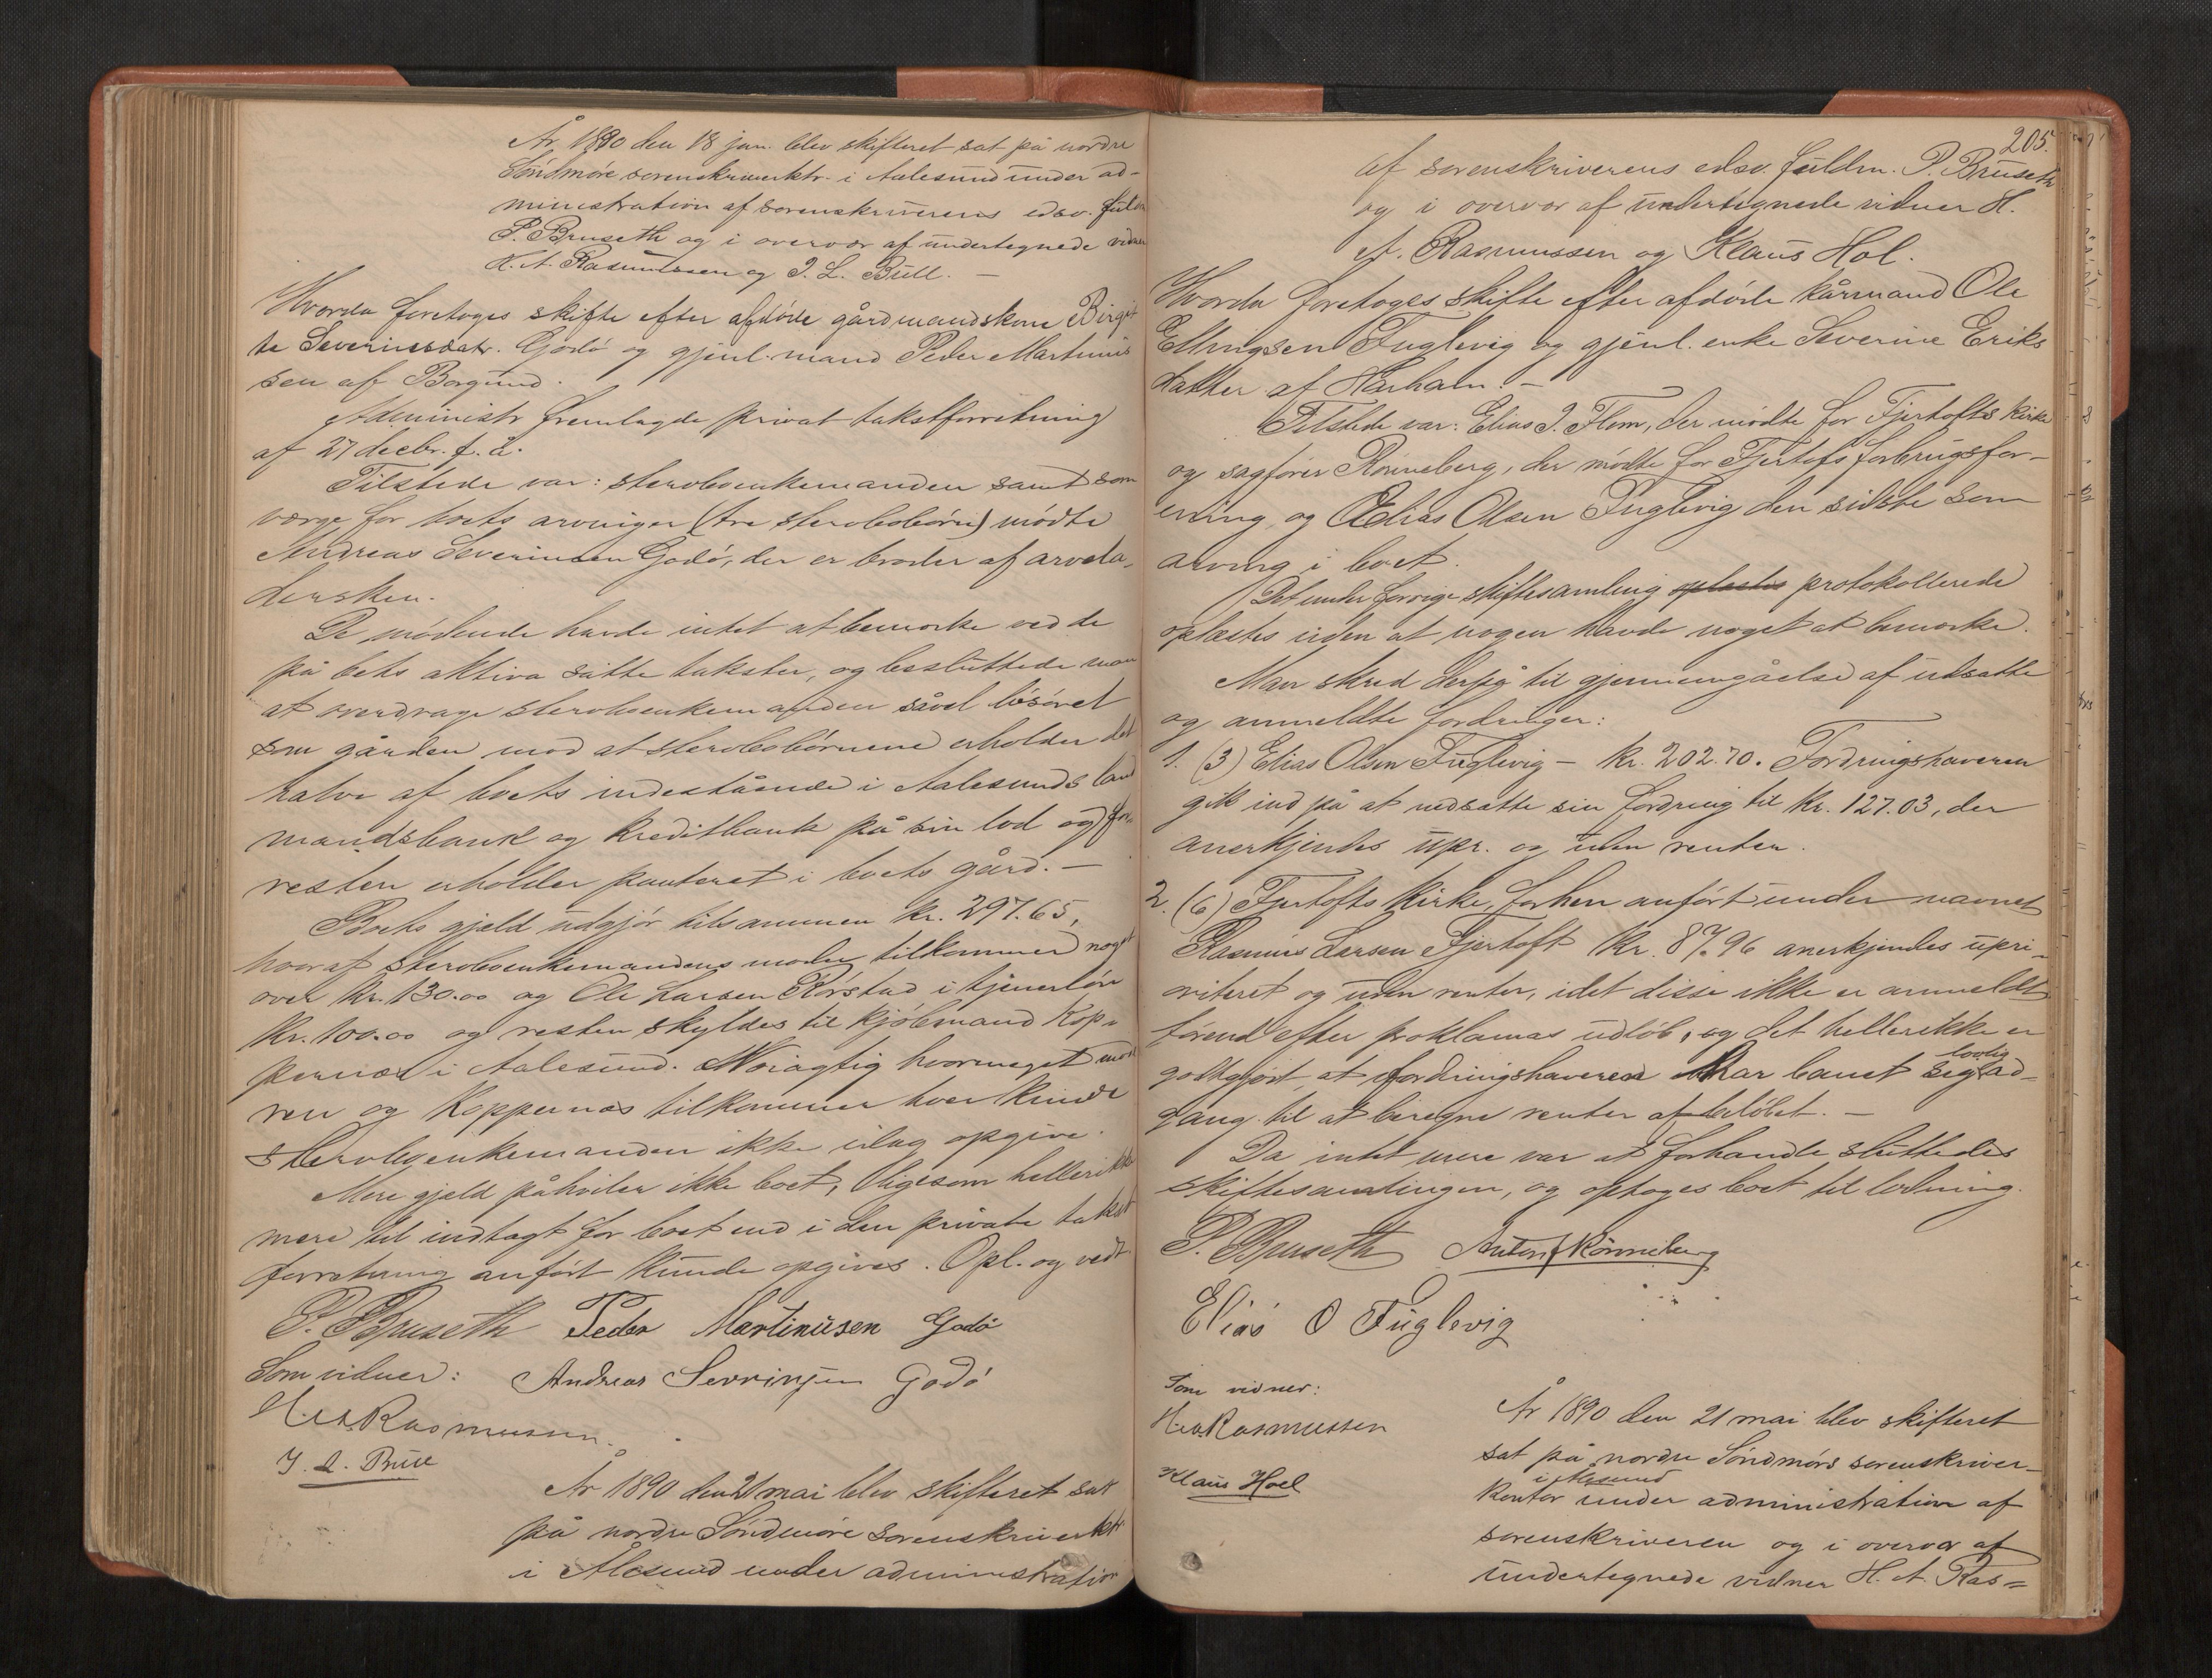 År 1890 den 18 jan. blev skifteret sat på nordre
Søndmøre sorenskriverktr. i Aalesund under ad-
ministration af sorenskriverens edsv. fuldm
P. Bruseth og i overvær af undertegnede vidner
H. A. Rasmussen og J. L. Bull. —
Hvorda foretoges skifte efter afdøde gårdmandskone Birgit
te Severinsdatr. Godø og gjenl. mand Peder Martinus
sen af Borgund.
Administr fremlagde privat takstforretning
af 27 decbr. f. å.
Tilstede var: sterboenkemanden samt som
værge for boets arvinger (tre sterbobørn) mødte
Andreas Severinsen Godø, der er broder af arvela-
dersken.
De mødende havde intet at bemærke ved de
på bets aktiva satte takster, og besluttede man
at overdrage sterboenkemanden såvel løsøret
som gården mod at sterbobørnene erholder det
halve af boets indestående i Aalesunds land
mandsbank og Kreditbank på sin lod og for
resten erholder panteret i boets gård. —
Boets gjeld udgjør tilsammen kr. 297.65,
hvoraf sterboenkemandens moder tilkommer noget
over kr. 130.00 og Ole Larsen Rørstad i tjenerløn
kr. 100.00 og resten skyldes til kjøbmand Kop-
pernæs i Aalesund. Nøiagtig hvormeget mod
ren og Koppernæs tilkommer hver kunde
sterboenkemanden ikke idag opgive.
Mere gjeld påhviler ikke boet, ligesom hellerikke
mere til indtægt for boet end i den private takst
forretning anført kunde opgives. Opl. og vedt.
P. Bruseth Peder Martinusen Godø
Som vidner: Andreas Sevrinsen Godø
H.A.Rasmussen.
J. L. Bull
År 1890 den 21 mai blev skifteret sat
på nordre Søndmøre sorenskriverktr
i Ålesund under administration
205.
af sorenskriverens edsv. fuldm. P. Bruseth
og i overvær af undertegnede vidner H.
A. Rasmussen og Klaus Hol.
Hvorda foretoges skifte efter afdøde kårmand Ole
Ellingsen Fuglevig og gjenl. enke Severine Eriks
datter af Harham. —
Tilstede var: Elias J. Flem, der mødte for Fjertofts kirke
og sagfører Rønneberg, der mødte for Fjertofts forbrugsfor-
ening, og Elias Olsen Fuglevig den sidste som
arving i boet.
Det under forrige skiftesamling oplæstes protokollerede
oplæstes uden at nogen havde noget at bemærke.
Man skred derpå til gjennemgåelse af udsatte
og anmeldte fordringer:
1. (3) Elias Olsen Fuglevig — kr. 202.70. Fordringshaveren
gik ind på at nedsætte sin fordring til kr. 127.03, der
anerkjendes upr. og uden renter.
2. (6) Fjertofts Kirke, forhen anført under navnet
Rasmus Larsen Fjertoft kr. 87.96 anerkjendes upri-
oriteret og uden renter, idet disse ikke er anmeldt
førend efter proklamas udløb, og det hellerikke er
godtgjort, at fordringshaveren har banet sig lovlig ad-
gang til at beregne renter af beløbet. —
Da intet mere var at forhandle sluttedes
skiftesamlingen, og optoges boet til lodning.
P. Bruseth Anton Rønneberg
Elias O Fuglevig
Som vidner:
H.A.Rasmussen
Klaus Hoel
År 1890 den 21 mai blev skifteret
sat på nordre Søndmørs sorenskriver-
kontor i Alesund under administration af
sorenskriveren og i overvær af
undertegnede vidner H. A. Ras=